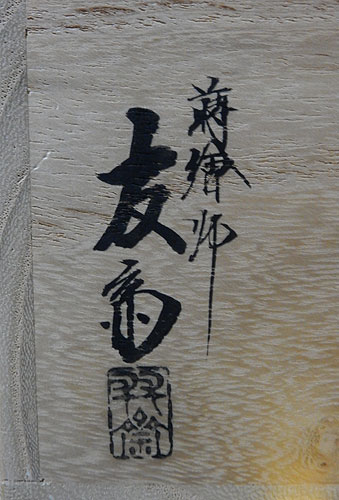 蒔繪師
友斎